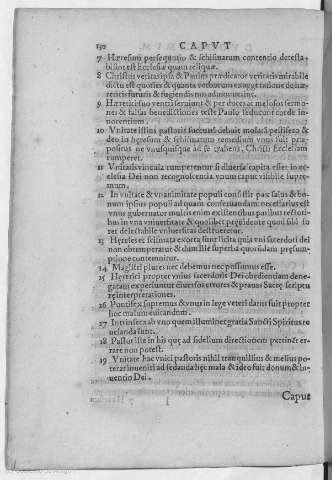 130 CAPVT
7 Hæresum persequutio & schismatum contentio detesta-
bilior est Ecclesiæ quam reliquæ.
8 Christus veritas ipsa & Paulus prædicator veritatis mirabile
dictu est quoties & quanta verborum exaggeratione de hæ-
reticis futuris & fugiendis nos admonuerint.
9 Hæretici suo ventri seruiunt & per dulces ac melosos sermo-
nes & falsas benedictiones teste Paulo seducunt corde in-
nocentium.
10 Vnitate istius pastoris succurri debuit malo tā pestifero &
deo in heresum & schismatum remedium vnus fuit præ-
positus ne vnusquisque ad se trahens, Christi Ecclesiam
rumperet.
11 Vnitatis vincula rumperentur si diuersa capita esset in ec-
clesia Dei non recognoscentia vnum caput visibile supre-
mum.
12 In vnitate & vnanimitate populi consistit pax salus & bo-
num ipsius populi ad quam conseruandam necessarius est
vnus gubernator multis enim existentibus paribus rectori-
bus in vna vniuersitate & quolibet præsidente quod sibi fo-
ret delectabile vniuersitas destrueretur.
13 Hereses et scismata exorta sunt licita quia vni sacerdoti dei
non obtemperatur & dum ille superba quorūdam præsum-
ptione contemnitur.
14 Magistri plures nec debemus nec possumus esse.
15 Heretici propter vnius sacerdotis Dei obedientiam dene-
gatam experiuntur diuersos errores & prauas Sacre scriptu
re interpretationes.
16 Pontifex supremus & vnus in lege veteri datus fuit propter
hoc malum euitandum.
17 Intrinseca ab vno quem illuminet gratia Sancti Spiritus re
uelanda sunt.
18 Pastor iste in his quę ad fidelium directionem pertinēt er-
rare non potest.
19 Vnitate hac vnici pastoris nihil tranquillius & melius po-
terat inueniri ad sedanda hęc mala & ideo fuit donum & in-
uentio Dei.
I
Caput